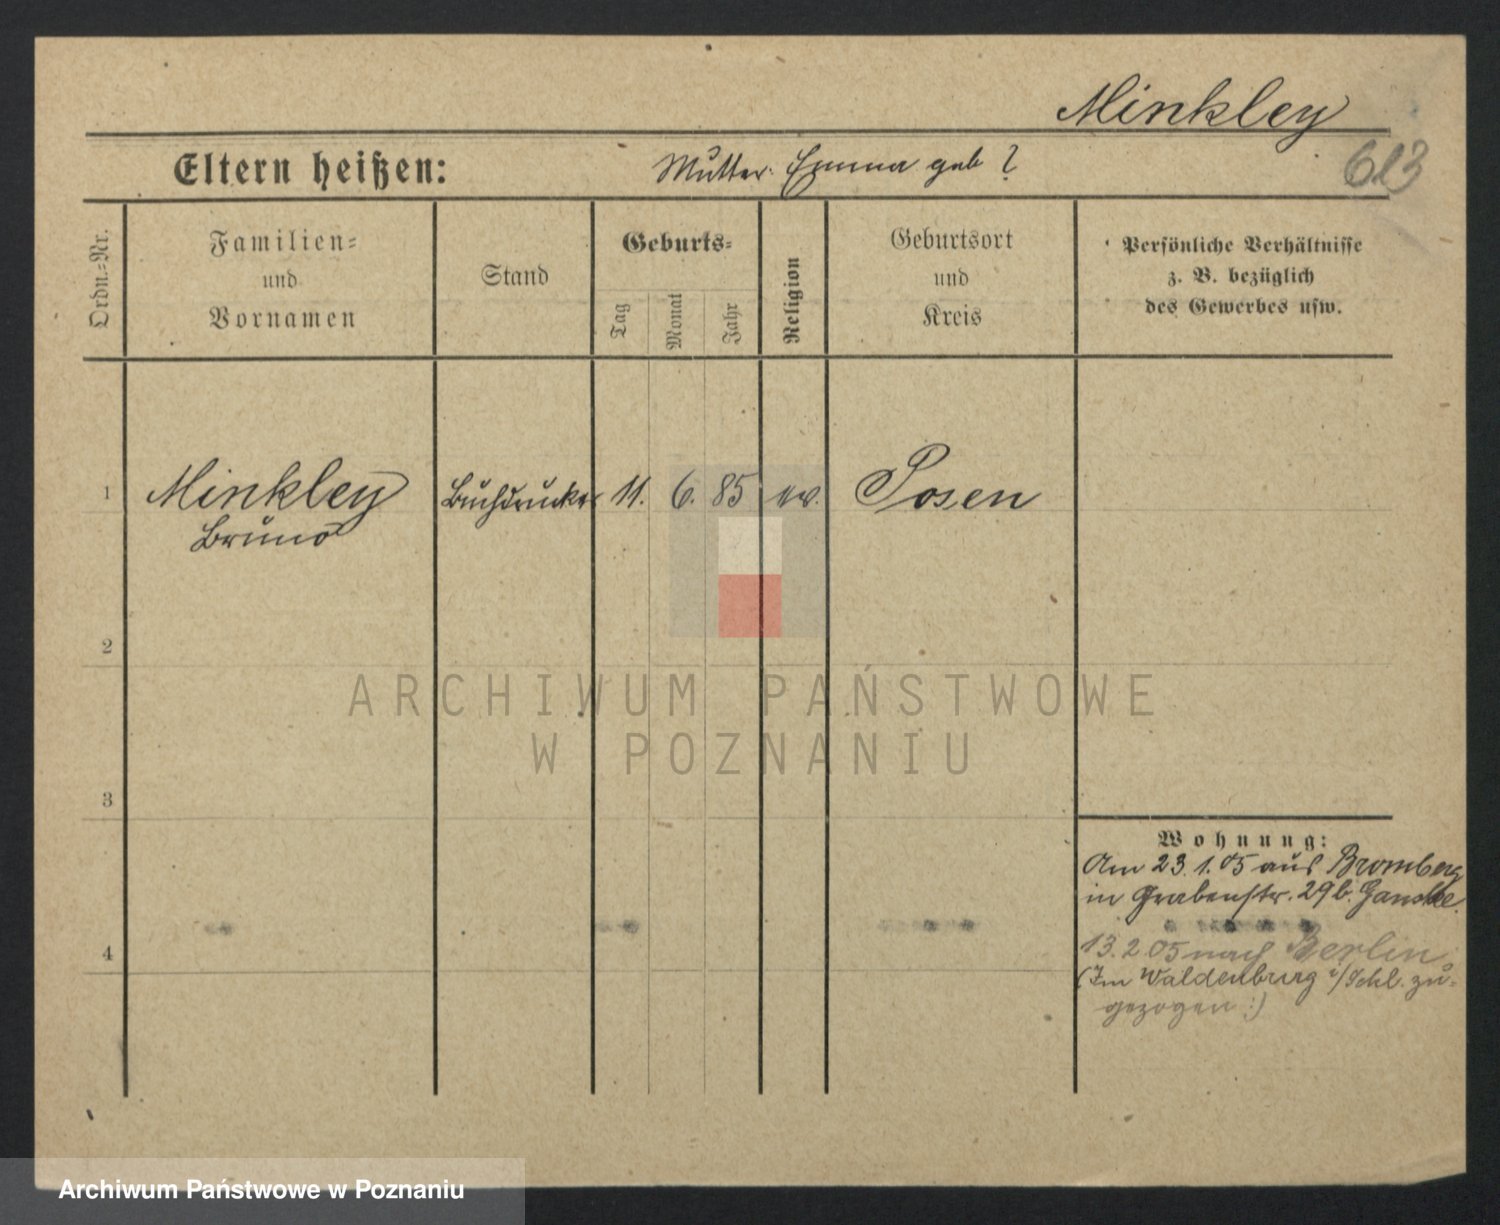 Minkley
613
Eltern heißen: Mutter: Emma geb ?
Ordn.-Nr.
Familien-
und
Vornamen
Stand
Geburts-
Tag
Monat
Jahr
Religion
Geburtsort
und
Kreis
Persönliche Verhältnisse
z. B. bezüglich
des Gewerbes usw.
1 Minkley Buchdrucker 11. 6. 85 ev. Posen
Bruno
2
ARCHIWUM PAŃSTWOWE
W POZNANIU
3
Wohnung:
Am 23.1.05 aus Bromberg
in Grabenstr. 29 b. Ganske.
4
13.2.05 nach Berlin
(Im Waldenburg i/Schl. zu-
gezogen :)
Archiwum Państwowe w Poznaniu